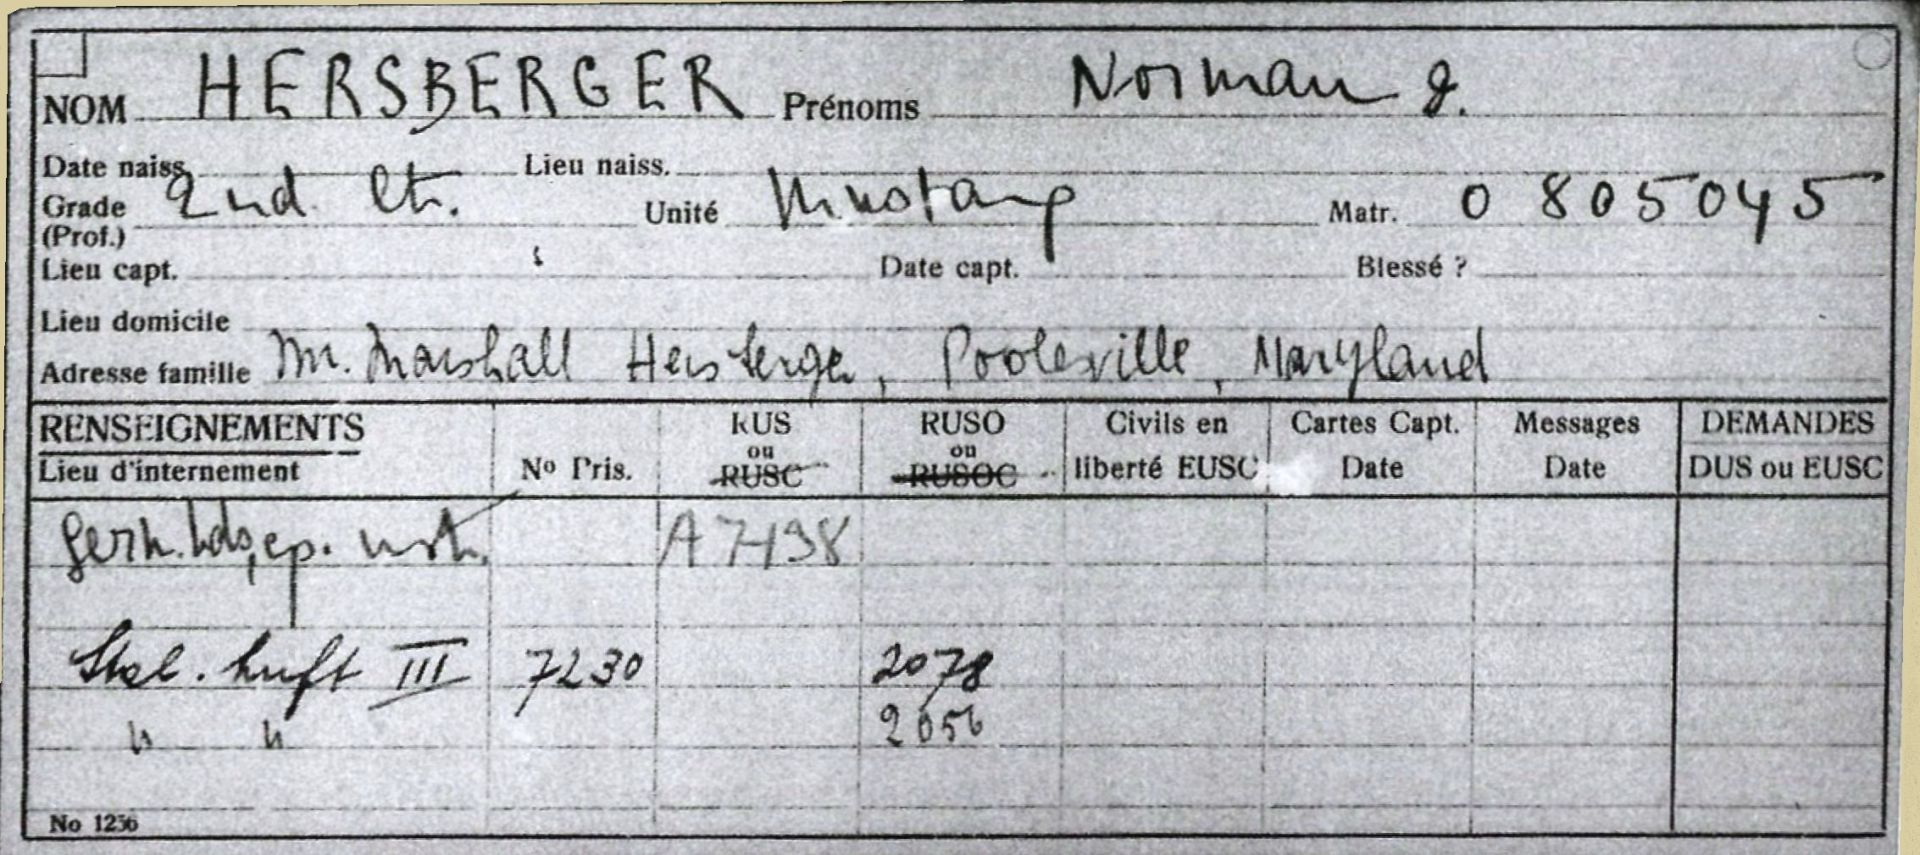 NOM HERSBERGER Prénoms Norman J.
Date naiss. Lieu naiss.
Grade 2nd. Lt. Unité Mustang Matr. 0 805045
(Prof.)
Lieu capt. Date capt. Blessé ?
Lieu domicile
Adresse famille Mr. Marshall Hersberger, Poolesville, Maryland
RENSEIGNEMENTS RUS RUSO Civils en Cartes Capt. Messages DEMANDES
ou ou
Lieu d'internement No Pris. RUSC RUSOC liberté EUSC Date Date DUS ou EUSC
A 7498
Stal. Luft III 7230 2078
" " 2056
No 1236